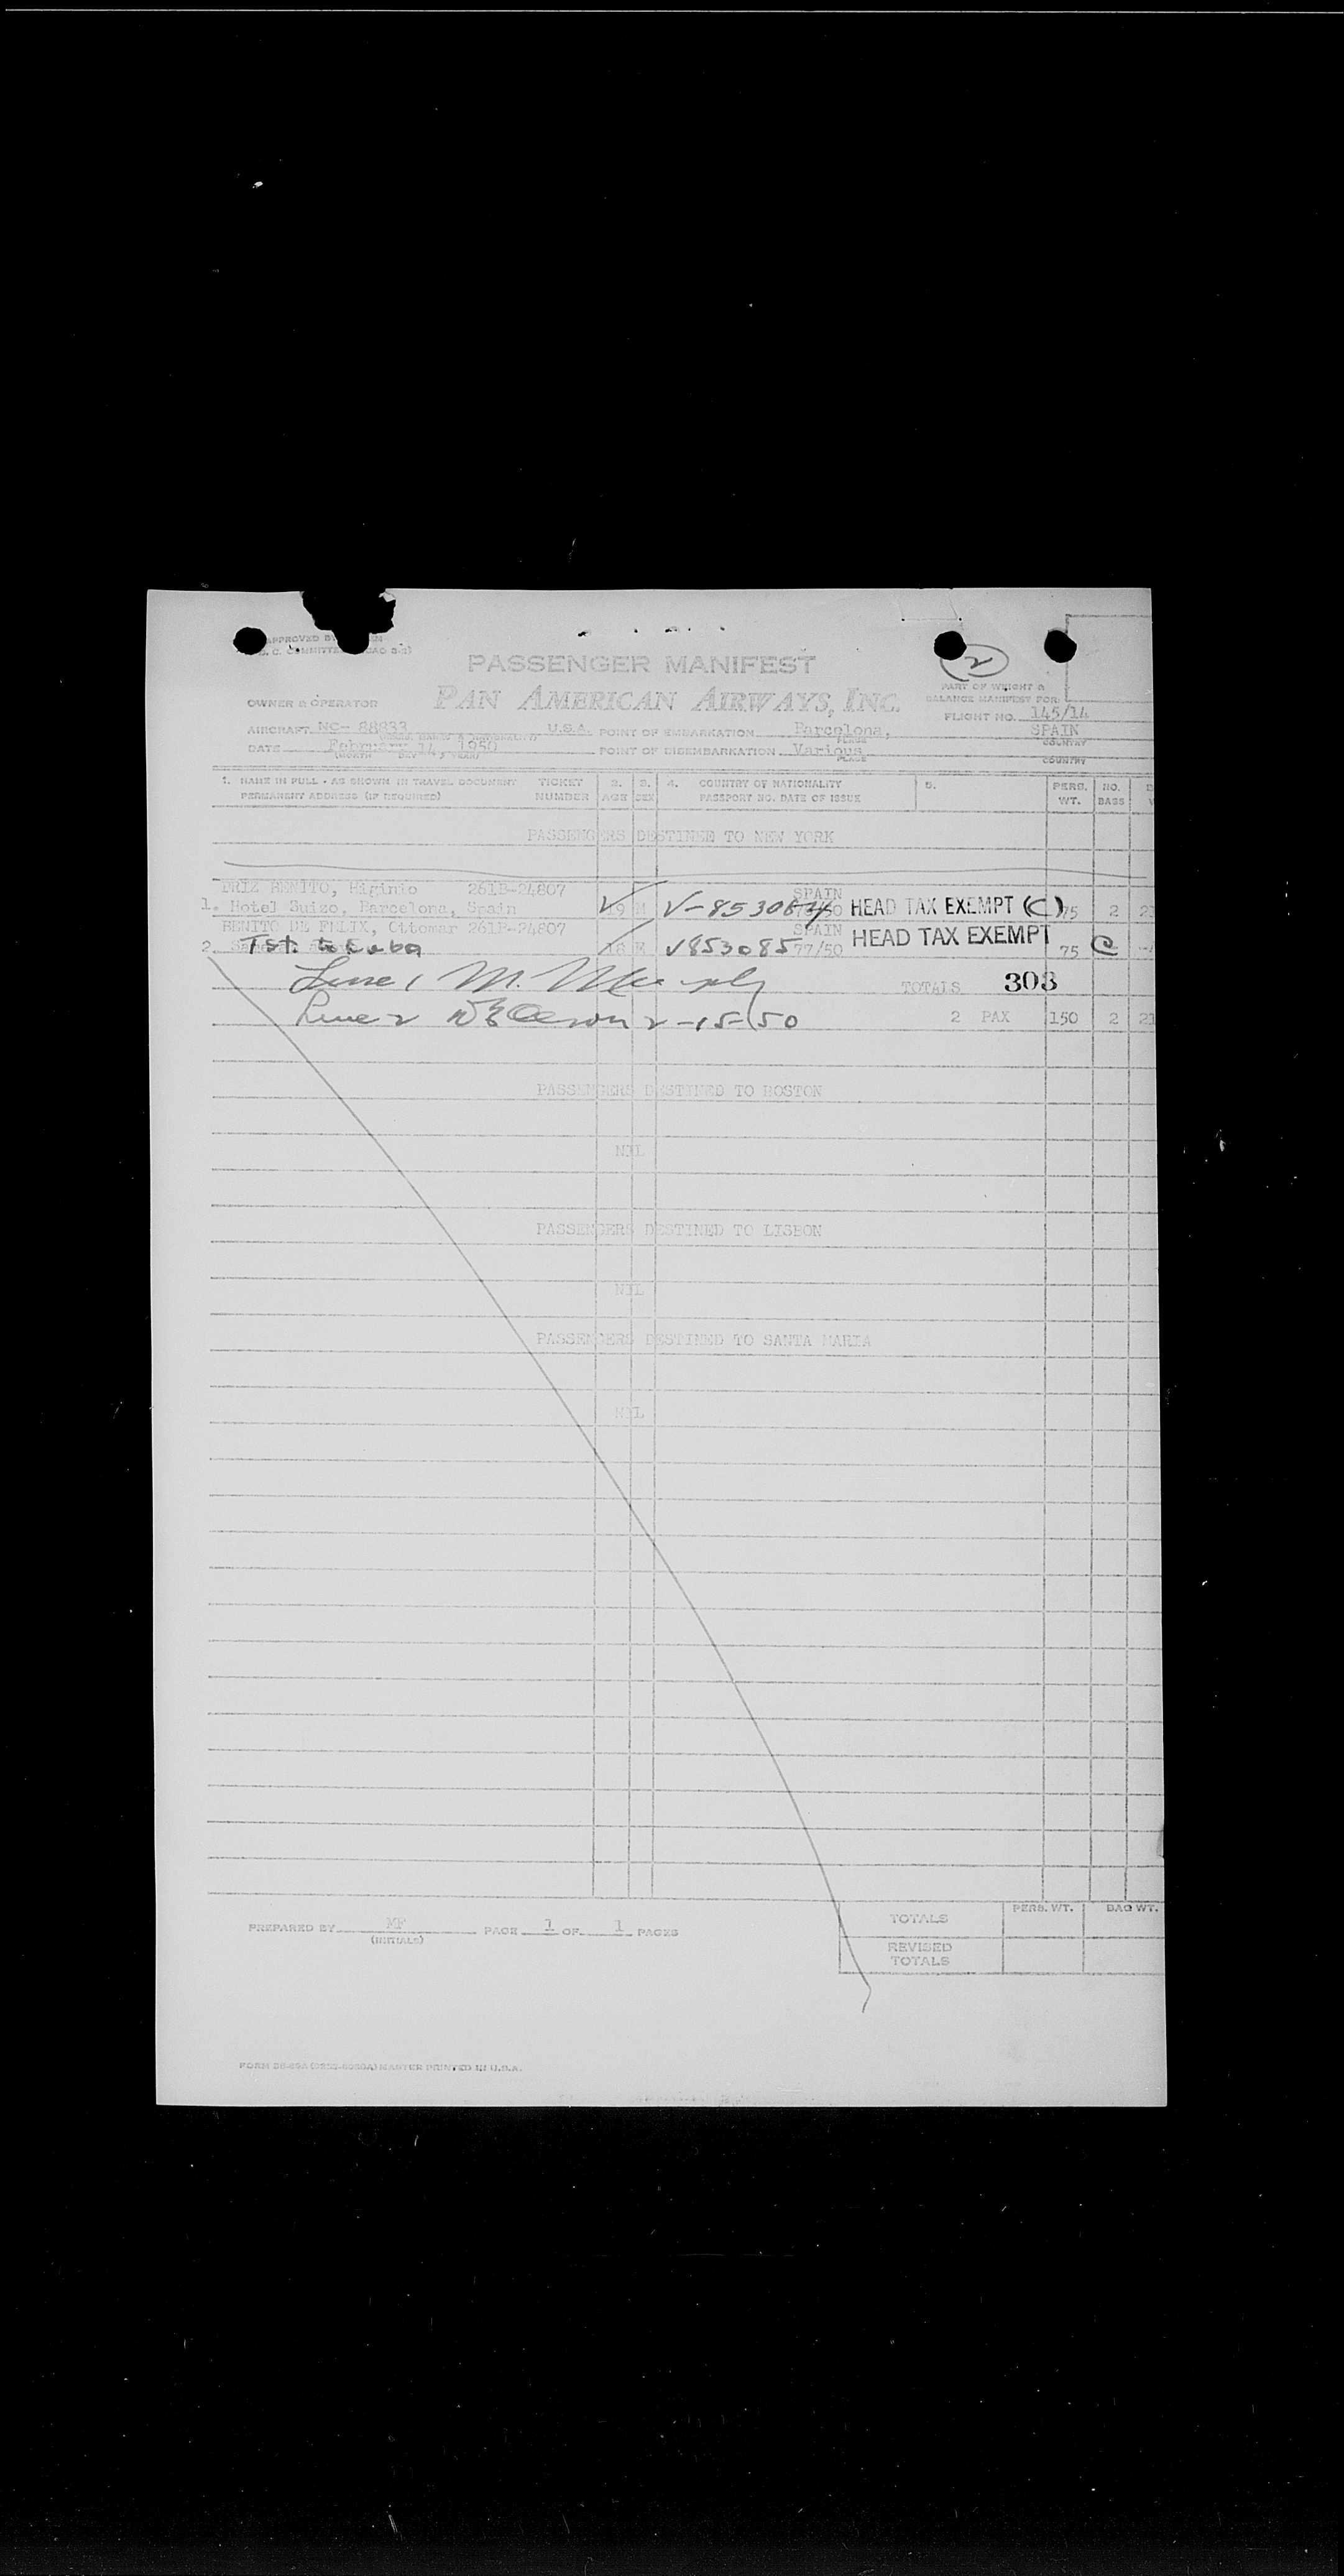 APPROVED BY
PASSENGER MANIFEST
2
PART OF WEIGHT &
BALANCE MANIFEST FOR:
OWNER & OPERATOR PAN AMERICAN AIRWAYS, INC.
FLIGHT NO. 145/14
AIRCRAFT NC- 88833 U.S.A. POINT OF EMBARKATION Barcelona, SPAIN
PLACE COUNTRY
DATE February 14, 1950 POINT OF DISEMBARKATION Various
(MONTH DAY YEAR) PLACE COUNTRY
1. NAME IN FULL - AS SHOWN IN TRAVEL DOCUMENT TICKET 2. 3. 4. COUNTRY OF NATIONALITY 5. PERS. NO.
PERMANENT ADDRESS (IF REQUIRED) NUMBER AGE SEX PASSPORT NO. DATE OF ISSUE WT. BAGS
PASSENGERS DESTINED TO NEW YORK
BENITO, Higinio 261B-24807 SPAIN
1. Hotel Suizo, Barcelona, Spain 19 M V-853084 HEAD TAX EXEMPT (C) 75 2
BENITO DE FELIX, 261B-24807 SPAIN
2. Tst. to Cuba 18 V853085 77/50 HEAD TAX EXEMPT 75 C
Line 1 M. Murphy TOTALS 303
Line 2 2-15-50 2 PAX 150 2 21
PASSENGERS DESTINED TO BOSTON
NIL
PASSENGERS DESTINED TO LISBON
NIL
PASSENGERS DESTINED TO SANTA MARIA
NIL
PERS. WT. BAG WT.
PREPARED BY MF PAGE 1 OF 1 PAGES TOTALS
(INITIALS)
REVISED
TOTALS
MASTER PRINTED IN U.S.A.